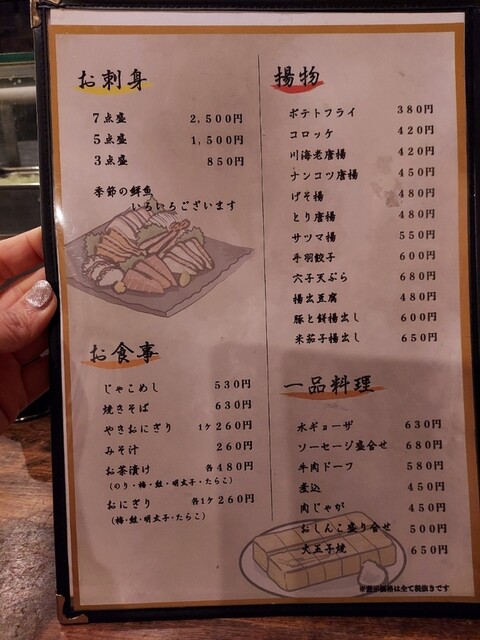 お刺身
7点盛 2,500円
5点盛 1,500円
3点盛 850円
季節の鮮魚
いろいろございます
お食事
じゃこめし 530円
焼きそば 630円
やきおにぎり 1ケ260円
みそ汁 260円
お茶漬け 各480円
(のり・梅・鮭・明太子・たらこ)
おにぎり 各1ケ260円
(梅・鮭・明太子・たらこ)
揚物
ポテトフライ 380円
コロッケ 420円
川海老唐揚 420円
ナンコツ唐揚 450円
げそ揚 480円
とり唐揚 480円
サツマ揚 550円
手羽餃子 600円
穴子天ぷら 680円
揚出豆腐 480円
豚と餅揚出し 600円
米茄子揚出し 650円
一品料理
水ギョーザ 630円
ソーセージ盛合せ 680円
牛肉ドーフ 580円
煮込 450円
肉じゃが 450円
おしんこ盛り合せ 500円
大玉子焼 650円
※表示価格は全て税抜きです